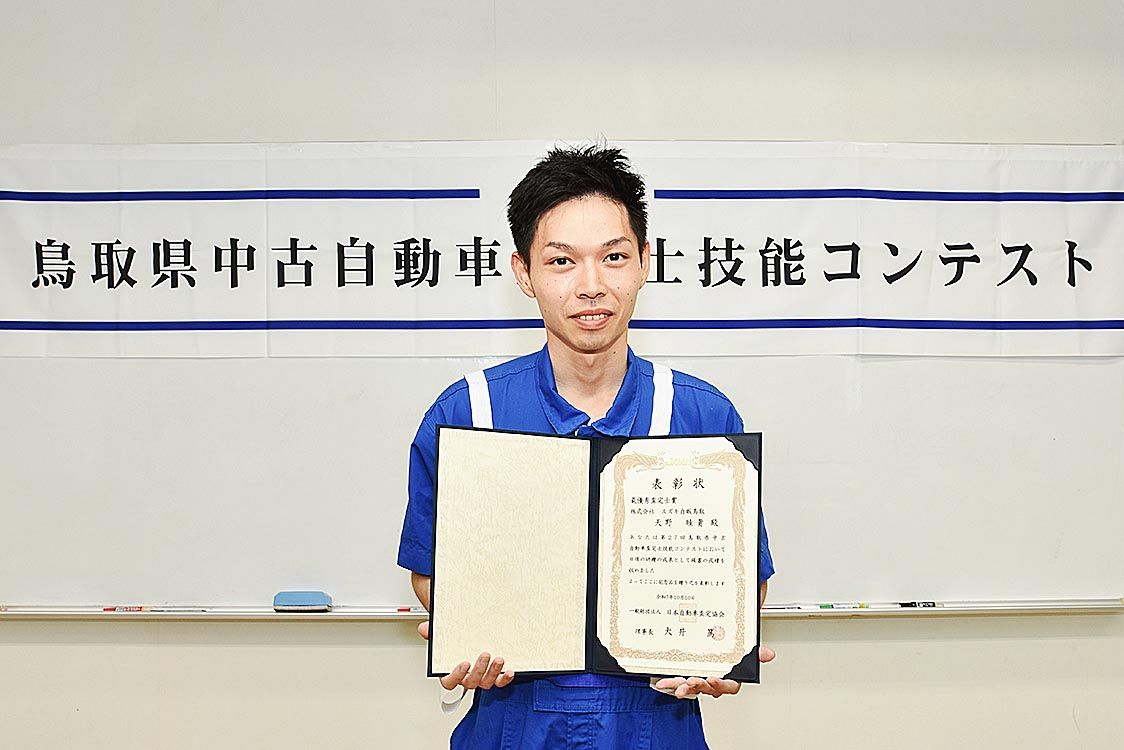 鳥取県中古自動車 士技能コンテスト
表彰状
最優秀査定士賞
株式会社 スズキ自販鳥取
天野 殿
あなたは第27回鳥取県中古
自動車査定士技能コンテストにおいて
日頃の研鑽の成果として頭書の成績を
収めました
よってここに記念品を贈り之を表彰します
令和7年10月10日
一般財団法人 日本自動車査定協会
理事長 大井 篤